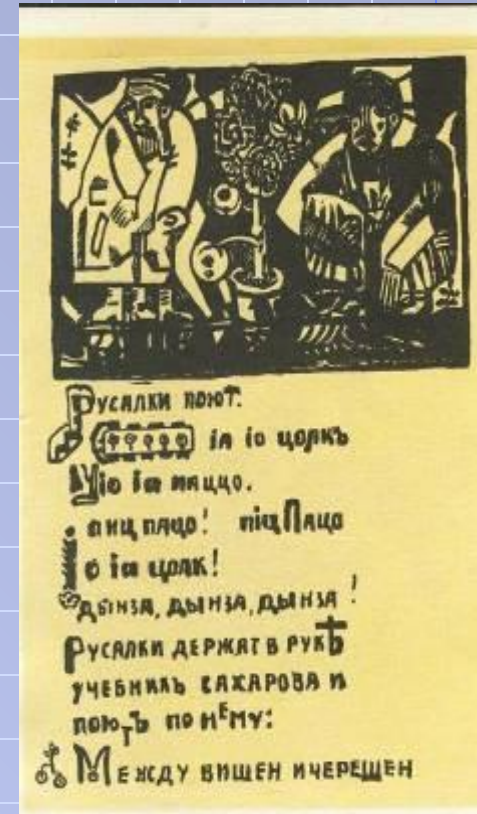 Русалки поют.
іа іо цолкъ
Ціо іа паццо.
піц пацо! піц Пацо
о іа цолк!
дынза, дынза, дынза!
Русалки держат в рукѣ
учебникъ Сахарова и
поютъ по нему:
Между вишен и черешен